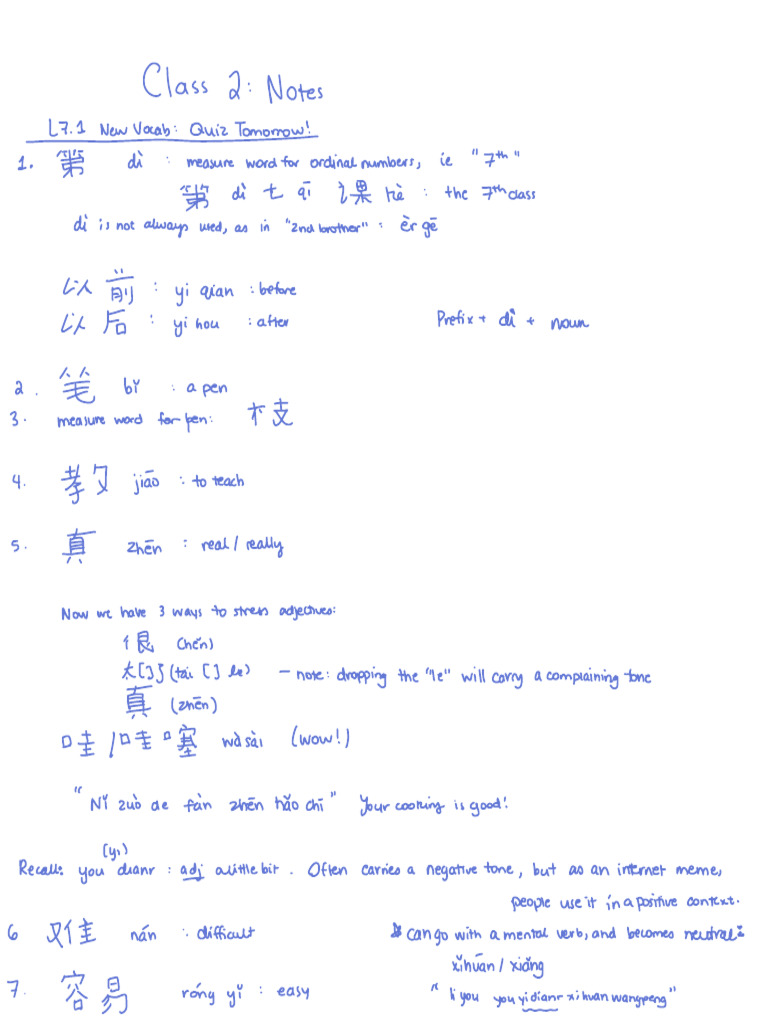 Class 2: Notes
L7.1 New Vocab: Quiz Tomorrow!
1. 第 dì : measure word for ordinal numbers, ie "7th"
第 dì 七 qī 课 kè : the 7th class
dì is not always used, as in "2nd brother" : èr gē
以前 : yi qian : before
以后 : yi hou : after
Prefix + dì + noun
2. 笔 bǐ : a pen
3. measure word for pen: 枝
4. 教 jiāo : to teach
5. 真 zhēn : real / really
Now we have 3 ways to stress adjectives:
很 (hěn)
太[ ]了(tai [ ] le) – note: dropping the "le" will carry a complaining tone
真 (zhēn)
哇/哇塞 wà sài (wow!)
"Nǐ zuò de fàn zhēn hǎo chī" Your cooking is good!
(yi)
Recall: you dianr : adj a little bit. Often carries a negative tone, but as an internet meme,
people use it in a positive context.
6 难 nán : difficult
can go with a mental verb, and becomes neutral:
xǐhuān / xiǎng
7. 容易 róng yǐ : easy
"li you you yidianr xi huan wangpeng"